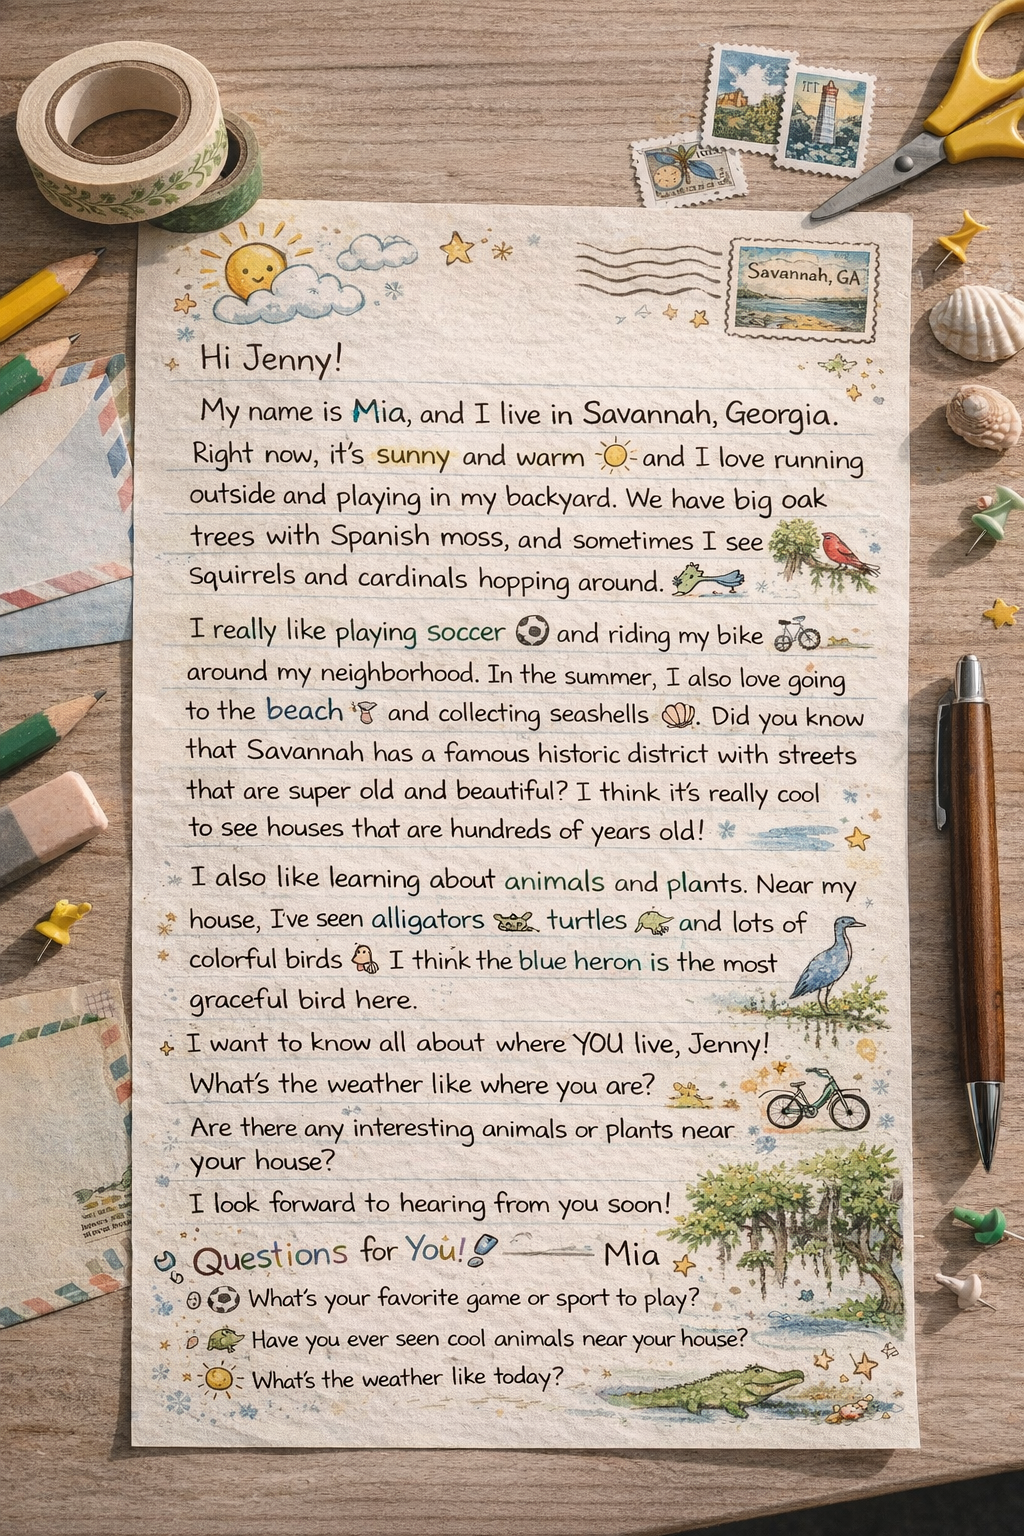 Savannah, GA
Hi Jenny!
My name is Mia, and I live in Savannah, Georgia.
Right now, it's sunny and warm and I love running
outside and playing in my backyard. We have big oak
trees with Spanish moss, and sometimes I see
squirrels and cardinals hopping around.
I really like playing soccer and riding my bike
around my neighborhood. In the summer, I also love going
to the beach and collecting seashells. Did you know
that Savannah has a famous historic district with streets
that are super old and beautiful? I think it's really cool
to see houses that are hundreds of years old!
I also like learning about animals and plants. Near my
house, I've seen alligators turtles and lots of
colorful birds I think the blue heron is the most
graceful bird here.
I want to know all about where YOU live, Jenny!
What's the weather like where you are?
Are there any interesting animals or plants near
your house?
I look forward to hearing from you soon!
Questions for You! Mia
What's your favorite game or sport to play?
Have you ever seen cool animals near your house?
What's the weather like today?